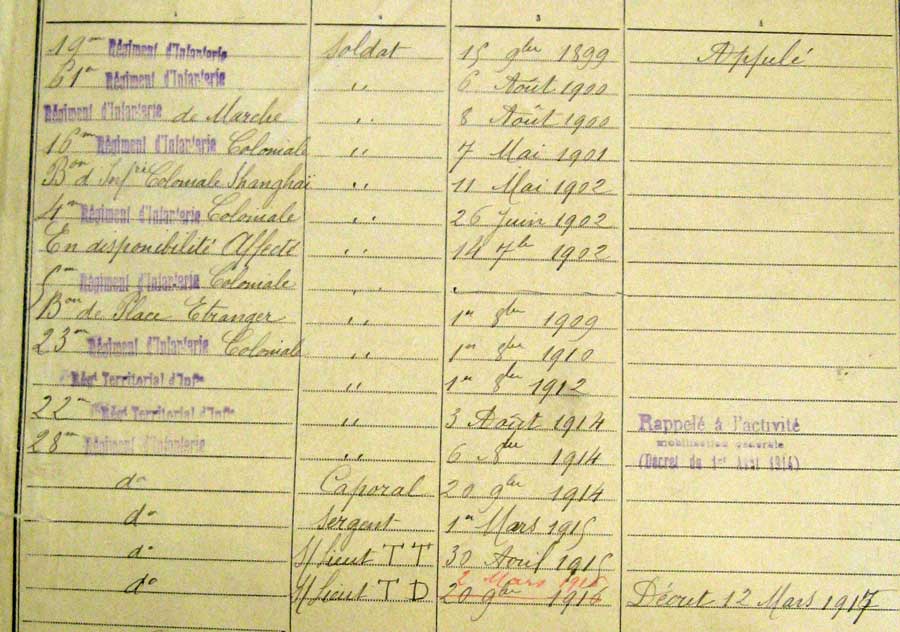 1 2 3 4
19me Régiment d'Infanterie Soldat 15 9bre 1899 Appelé
61e Régiment d'Infanterie " 6 Août 1900
Régiment d'Infanterie de Marche " 8 Août 1900
16me Régiment d'Infanterie Coloniale " 7 Mai 1901
Bon d'Infrie Coloniale Shanghaï " 11 Mai 1902
4me Régiment d'Infanterie Coloniale " 26 Juin 1902
En disponibilité Affecté " 14 7bre 1902
Régiment d'Infanterie Coloniale "
Bon de Place Etranger " 1er 8bre 1909
23me Régiment d'Infanterie Coloniale " 1er 8bre 1910
Régt Territorial d'Infie " 1er 8bre 1912
22me Régt Territorial d'Infie " 3 Août 1914 Rappelé à l'activité
mobilisation générale
28me Régiment d'Infanterie " 6 8bre 1914 (Décret du 1er Août 1914)
do Caporal 20 9bre 1914
do Sergent 1er Mars 1915
do S/lieut T T 30 Avril 1915
2 Mars 1916
do S/lieut T D 20 9bre 1916 Décret 12 Mars 1917